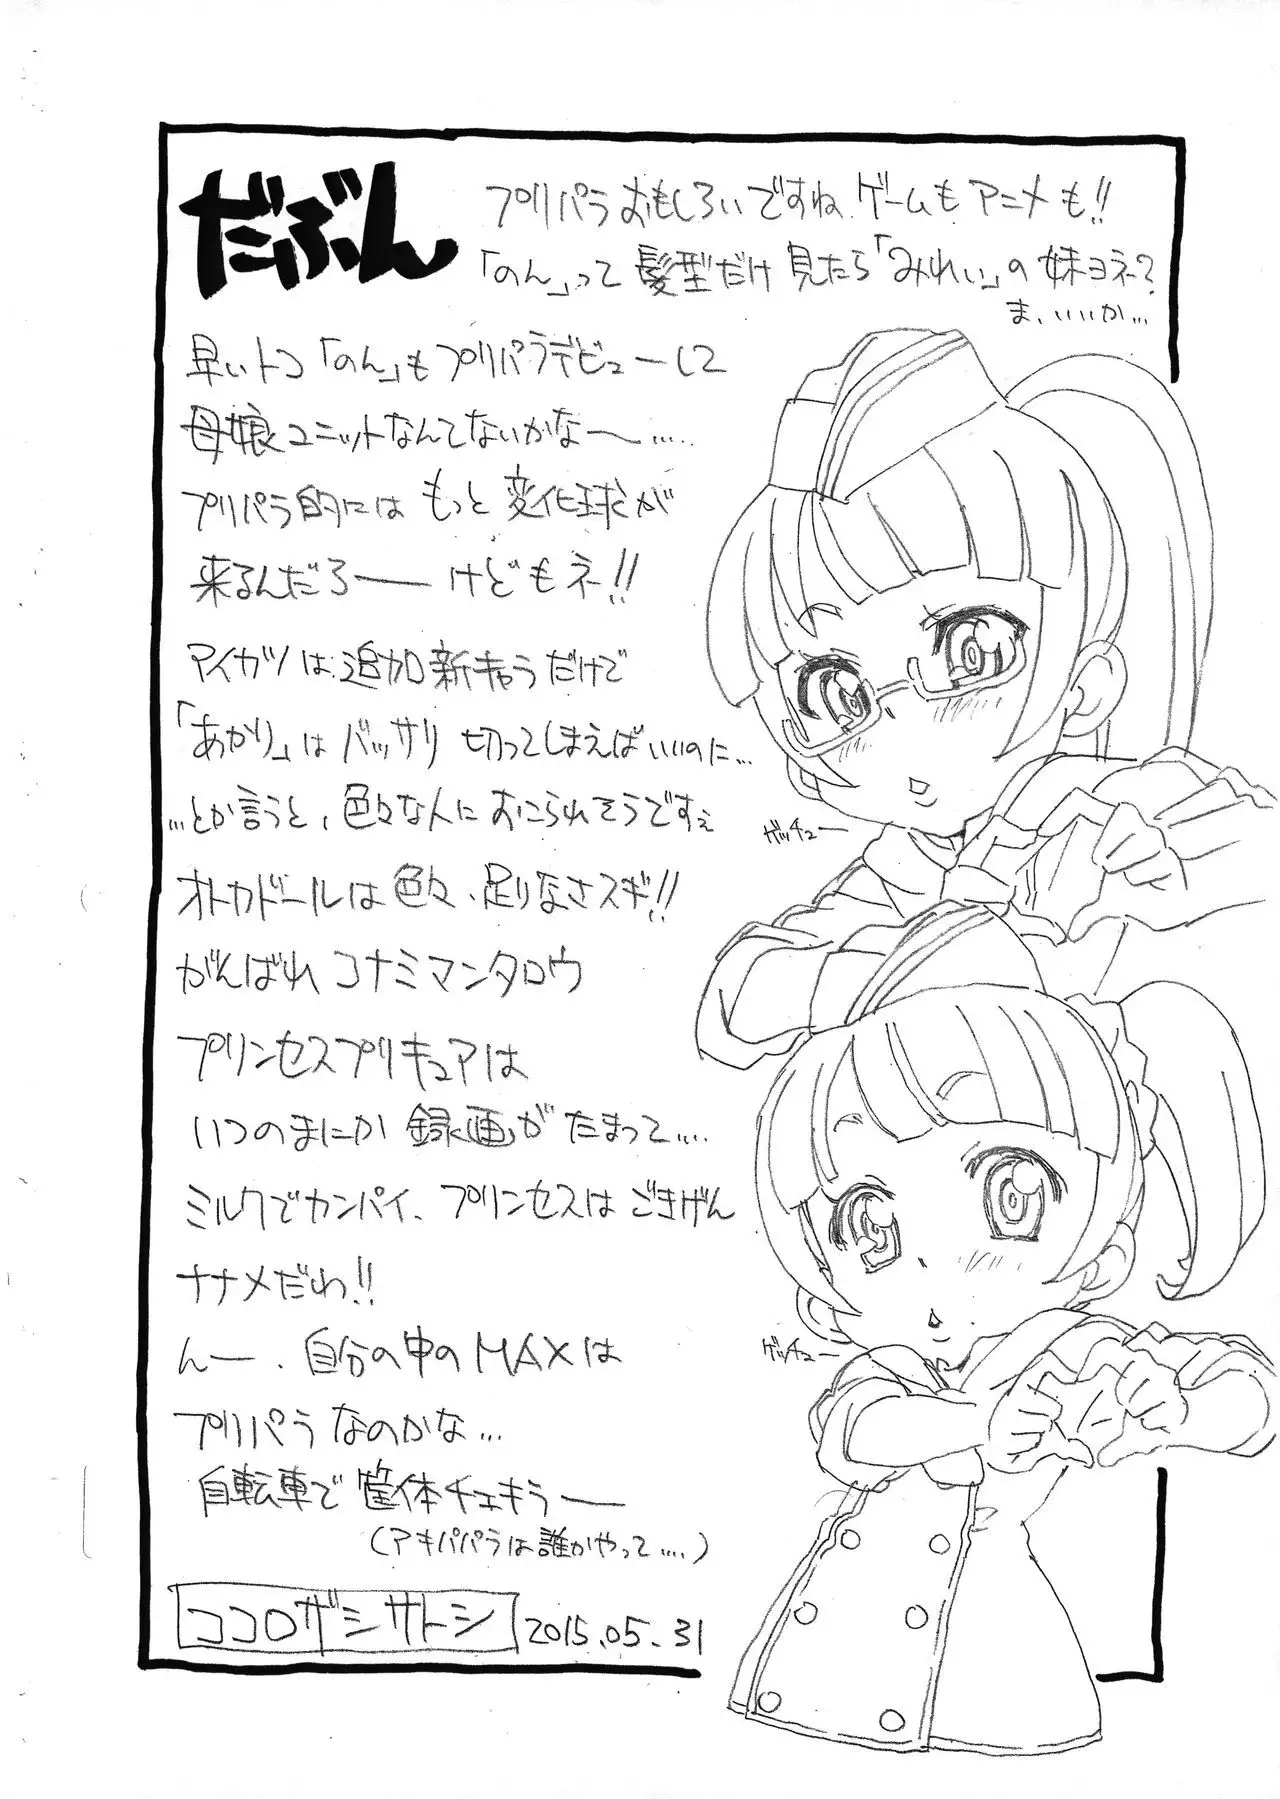 だぶん
プリパラおもしろいですね、ゲームもアニメも!!
「のん」って髪型だけ見たら「みれぃ」の妹ヨネ?
ま、いいか…
早いトコ「のん」もプリパラデビューして
母娘ユニットなんてないかなー……
プリパラ的にはもっと変化球が
来るんだろーーけどもネー!!
アイカツは追加新キャラだけで
「あかり」はバッサリ切ってしまえばいいのに…
…とか言うと、色々な人におこられそうですぇ
オトカドールは色々、足りなさスギ!!
がんばれコナミマンタロウ
プリンセスプリキュアは
いつのまにか録画がたまって….
ミルクでカンパイ、プリンセスはごきげん
ナナメだわ!!
んー、自分の中のMAXは
プリパラなのかな…
自転車で筐体チェキラー
(アキパパラは誰かやって….)
ココロザシサトシ 2015.05.31
ゲッチュー
ゲッチュー